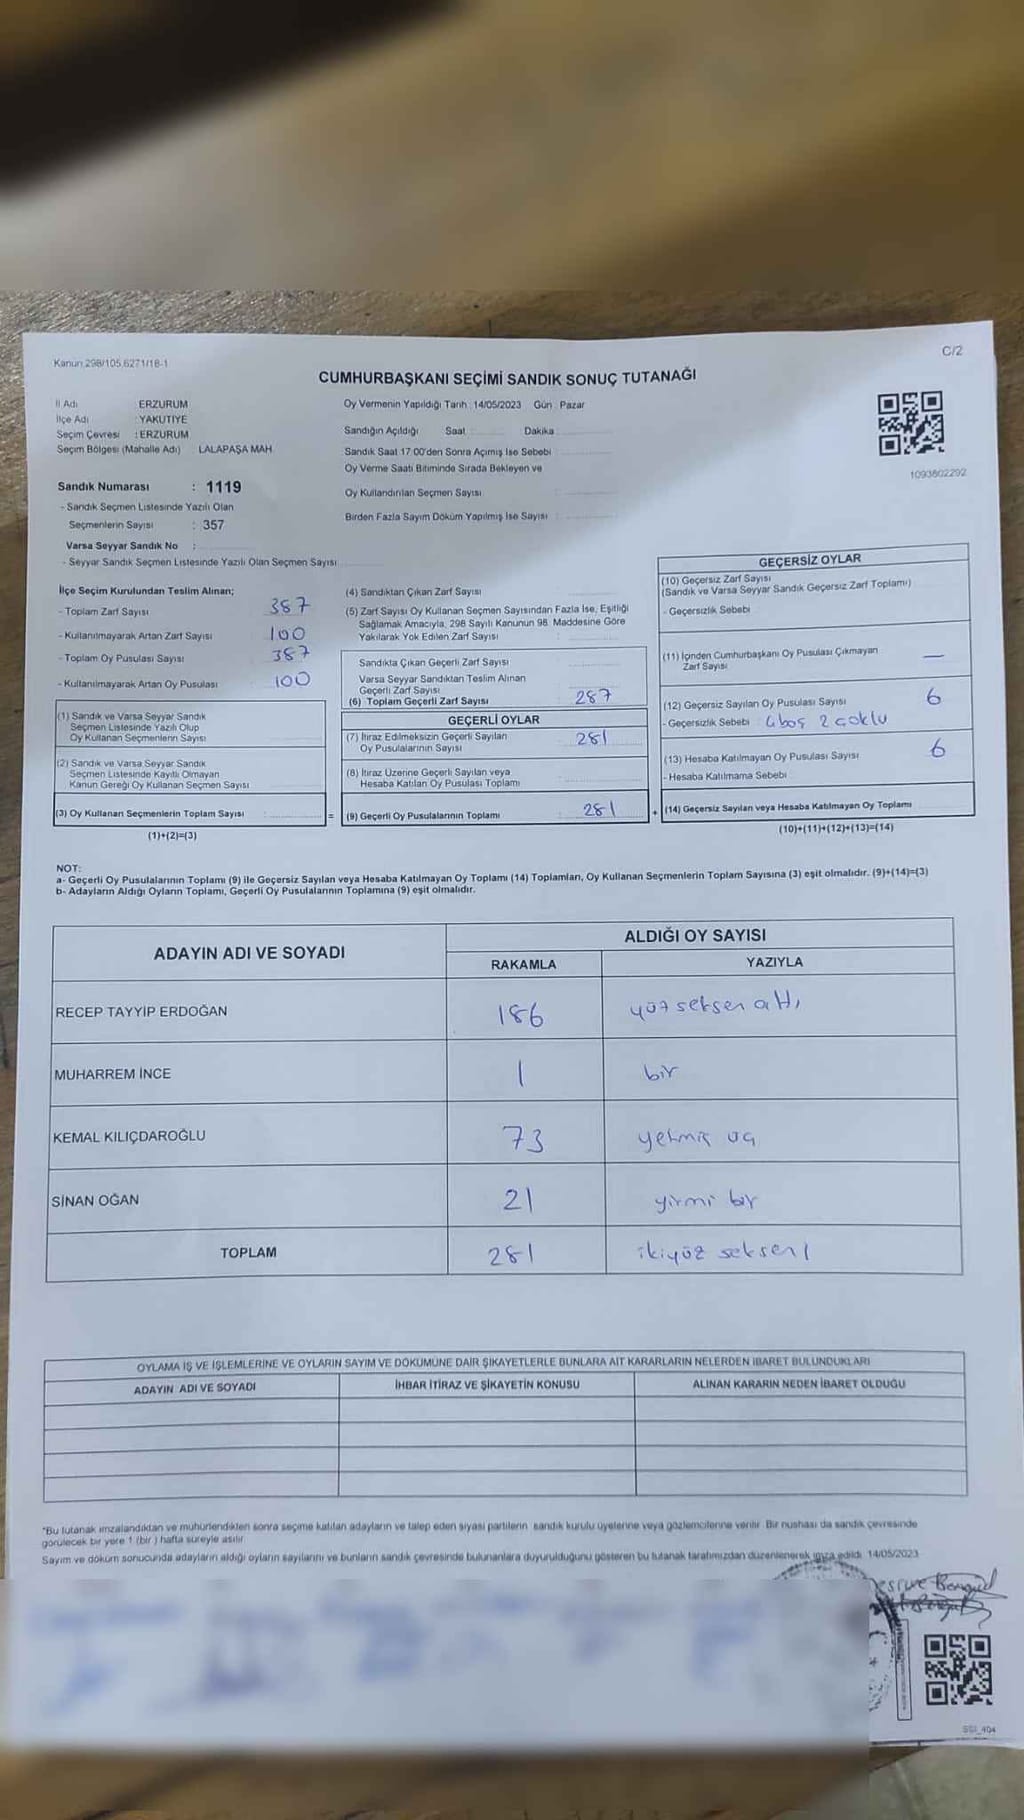 Kanun 298/105,6271/18-1
C/2
CUMHURBAŞKANI SEÇİMİ SANDIK SONUÇ TUTANAĞI
İl Adı : ERZURUM
İlçe Adı : YAKUTİYE
Seçim Çevresi : ERZURUM
Seçim Bölgesi (Mahalle Adı) LALAPAŞA MAH.
Oy Vermenin Yapıldığı Tarih : 14/05/2023 Gün : Pazar
Sandığın Açıldığı Saat : Dakika
Sandık Saat 17:00'den Sonra Açımış İse Sebebi
Oy Verme Saati Bitiminde Sırada Bekleyen ve
Oy Kullandırılan Seçmen Sayısı
Birden Fazla Sayım Döküm Yapılmış İse Sayısı
1093802292
Sandık Numarası : 1119
- Sandık Seçmen Listesinde Yazılı Olan
Seçmenlerin Sayısı : 357
Varsa Seyyar Sandık No :
- Seyyar Sandık Seçmen Listesinde Yazılı Olan Seçmen Sayısı
İlçe Seçim Kurulundan Teslim Alınan;
- Toplam Zarf Sayısı 387
- Kullanılmayarak Artan Zarf Sayısı 100
- Toplam Oy Pusulası Sayısı 387
- Kullanılmayarak Artan Oy Pusulası 100
(1) Sandık ve Varsa Seyyar Sandık
Seçmen Listesinde Yazılı Olup
Oy Kullanan Seçmenlerin Sayısı
(2) Sandık ve Varsa Seyyar Sandık
Seçmen Listesinde Kayıtlı Olmayan
Kanun Gereği Oy Kullanan Seçmen Sayısı
(3) Oy Kullanan Seçmenlerin Toplam Sayısı : =
(1)+(2)=(3)
(4) Sandıktan Çıkan Zarf Sayısı
(5) Zarf Sayısı Oy Kullanan Seçmen Sayısından Fazla İse, Eşitliği
Sağlamak Amacıyla, 298 Sayılı Kanunun 98. Maddesine Göre
Yakılarak Yok Edilen Zarf Sayısı
Sandıkta Çıkan Geçerli Zarf Sayısı
Varsa Seyyar Sandıktan Teslim Alınan
Geçerli Zarf Sayısı
(6) Toplam Geçerli Zarf Sayısı 287
GEÇERLİ OYLAR
(7) İtiraz Edilmeksizin Geçerli Sayılan
Oy Pusulalarının Sayısı 281
(8) İtiraz Üzerine Geçerli Sayılan veya
Hesaba Katılan Oy Pusulası Toplamı
(9) Geçerli Oy Pusulalarının Toplamı : 281 +
GEÇERSİZ OYLAR
(10) Geçersiz Zarf Sayısı
(Sandık ve Varsa Seyyar Sandık Geçersiz Zarf Toplamı)
- Geçersizlik Sebebi
(11) İçinden Cumhurbaşkanı Oy Pusulası Çıkmayan
Zarf Sayısı —
(12) Geçersiz Sayılan Oy Pusulası Sayısı 6
- Geçersizlik Sebebi : 4 boş 2 çoklu
(13) Hesaba Katılmayan Oy Pusulası Sayısı 6
- Hesaba Katılmama Sebebi
(14) Geçersiz Sayılan veya Hesaba Katılmayan Oy Toplamı
(10)+(11)+(12)+(13)=(14)
NOT:
a- Geçerli Oy Pusulalarının Toplamı (9) ile Geçersiz Sayılan veya Hesaba Katılmayan Oy Toplamı (14) Toplamları, Oy Kullanan Seçmenlerin Toplam Sayısına (3) eşit olmalıdır. (9)+(14)=(3)
b- Adayların Aldığı Oyların Toplamı, Geçerli Oy Pusulalarının Toplamına (9) eşit olmalıdır.
ADAYIN ADI VE SOYADI ALDIĞI OY SAYISI
RAKAMLA YAZIYLA
RECEP TAYYİP ERDOĞAN 186 yüz seksen altı
MUHARREM İNCE 1 bir
KEMAL KILIÇDAROĞLU 73 yetmiş üç
SİNAN OĞAN 21 yirmi bir
TOPLAM 281 ikiyüz seksen1
OYLAMA İŞ VE İŞLEMLERİNE VE OYLARIN SAYIM VE DÖKÜMÜNE DAİR ŞİKAYETLERLE BUNLARA AİT KARARLARIN NELERDEN İBARET BULUNDUKLARI
ADAYIN ADI VE SOYADI İHBAR İTİRAZ VE ŞİKAYETİN KONUSU ALINAN KARARIN NEDEN İBARET OLDUĞU
*Bu tutanak imzalandıktan ve mühürlendikten sonra seçime katılan adayların ve talep eden siyasi partilerin sandık kurulu üyelerine veya gözlemcilerine verilir. Bir nüshası da sandık çevresinde
görülecek bir yere 1 (bir ) hafta süreyle asılır.
Sayım ve döküm sonucunda adayların aldığı oyların sayılarını ve bunların sandık çevresinde bulunanlara duyurulduğunu gösteren bu tutanak tarafımızdan düzenlenerek imza edildi. 14/05/2023